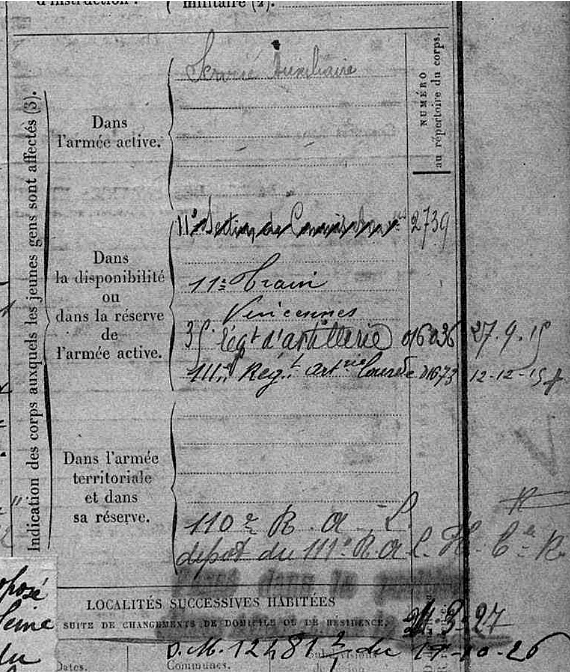 d'instruction :
militaire (2).
Indication des corps auxquels les jeunes gens sont affectés (3).
NUMÉRO
au répertoire du corps.
Service Auxiliaire
Dans
l'armée active.
11e Section de 2739
Dans
la disponibilité
ou
dans la réserve
de
l'armée active.
11e Train
Vincennes
35 Régt d'artillerie 016036 27.9.15
111e Régt Artrie Lourde 01673 12-12-15
Dans l'armée
territoriale
et dans
sa réserve.
110e R. A. L.
dépôt du 111e R.A.L.
LOCALITÉS SUCCESSIVES HABITÉES
SUITE DE CHANGEMENTS DE DOMICILE OU DE RÉSIDENCE.
3-27
D.M. 12481 du 17-10-26
Seine
du
Dates.
Communes.